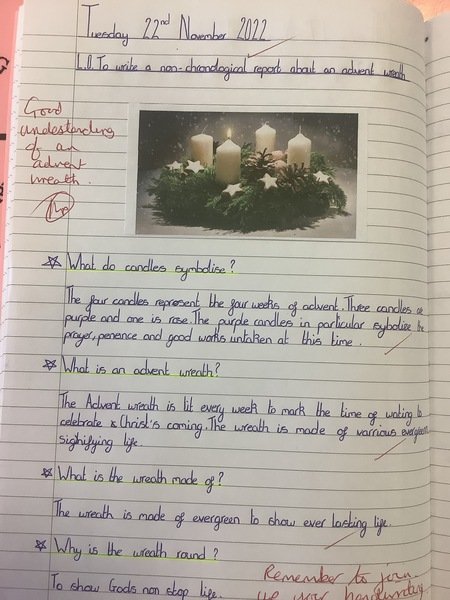 Tuesday 22nd November 2022
L.O. To write a non-chronological report about an advent wreath
Good
understanding
of an
advent
wreath.
1hp
What do candles symbolise?
The four candles represent the four weeks of advent. Three candles are
purple and one is rose. The purple candles in particular sybolize the
prayer, penence and good works untaken at this time.
What is an advent wreath?
The Advent wreath is lit every week to mark the time of wating to
celebrate Christ's coming. The wreath is made of varrious evergreen
sighifying life.
What is the wreath made of?
The wreath is made of evergreen to show ever lasting life.
Why is the wreath round?
To show Gods non stop life.
Remember to join
up your handwriting